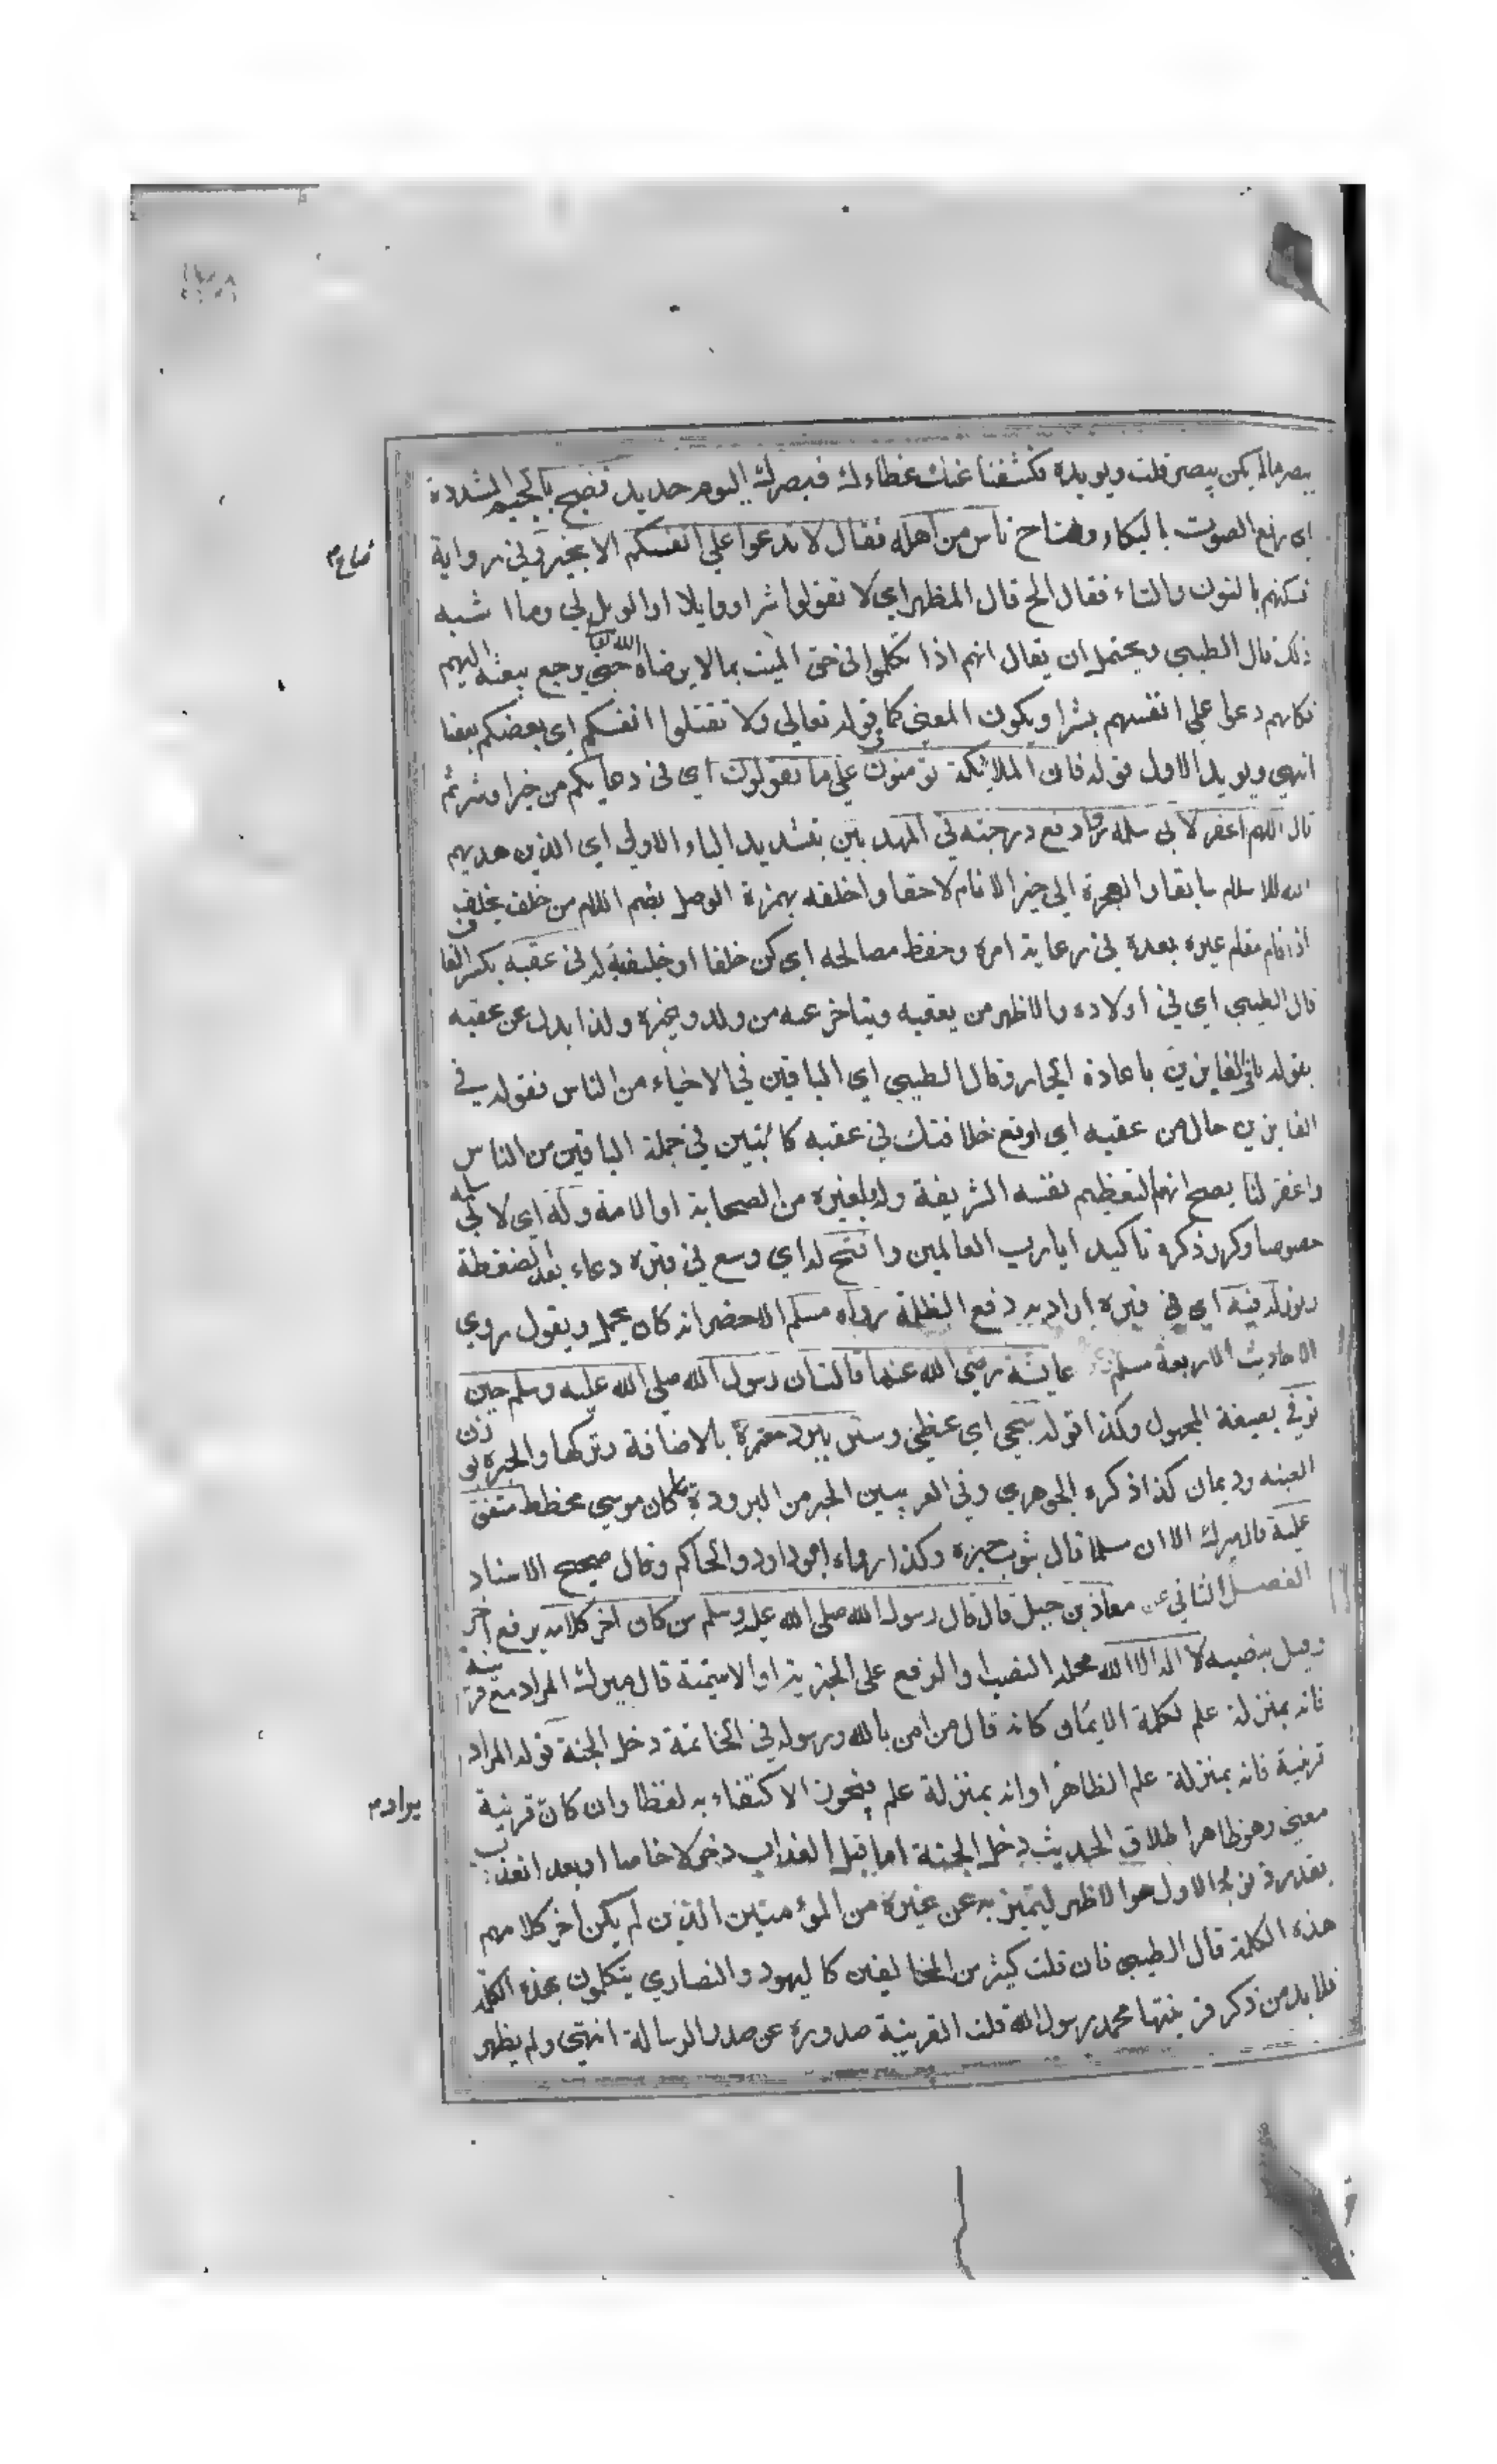 يبصر مالم يكن يبصر قلت ويويده فكشفنا عنك غطاءك فبصرك اليوم حديد فضج بالجيم المشددة
اى رفع الصوت بالبكاء وصاح ناس من اهله فقال لا تدعوا علي انفسكم الا بخير وفي رواية
صاح م
بالنون والتاء فقال الخ قال المظهر اى لا تقولوا شرا او وايلا او الويل لي وما اشبه
ذلك قال الطيبي ويحتمل ان يقال انهم اذا تكلموا في حق الميت بما لا يرضاه الله تعا حتي يرجع تبعته اليهم
فكانهم دعوا علي انفسهم بشر او يكون المعني كما في قوله تعالي ولا تقتلوا انفسكم اى بعضكم بعضا
انتهي ويويد الاول قوله فان الملائكة يؤمنون علي ما تقولون اى في دعايكم من خير او شر ثم
قال اللهم اغفر لابي سلمة وارفع درجته في المهديين بتشديد الياء الاولي اي الذين هديهم
الله للاسلام سابقا والهجرة الي خير الانام لاحقا واخلفه بهمزة الوصل بضم اللام من خلف يخلف
اذا قام مقام غيره بعده في رعاية امره وحفظ مصالحه اى كن خلفا او خليفة له في عقبه بكسر القاف
قال الطيبي اى في اولاده والاظهر من يعقبه ويتاخر عنه من ولد وغيره ولذا ابدل عن عقبه
بقوله في الغابرين باعادة الجار وقال الطيبي اي الباقين في الاحياء من الناس فقوله في
الغابرين حال من عقبه اى اوقع خلافتك في عقبه كائنين في جملة الباقين من الناس
واغفر لنا يصح انه لتعظيم نفسه الشريفة وله ولغيره من الصحابة او الامة وله اى لابي سلمه
خصوصا وكرر ذكره تاكيدا يارب العالمين وافسح له اي وسع في قبره دعاء بعدم الضغطة
ونور له فيه اى في قبره اراد به دفع الظلمة رواه مسلم الاحضر انه كان يجمل ويقول روي
الاحاديث الاربعة مسلم عن عايشة رضي الله عنها قالت ان رسول الله صلى الله عليه وسلم حين
توفي بصيغة المجهول وكذا قوله سجي اي غطي وستر ببرد حبرة بالاضافة وتركها والحبرة بوزن
العنبه برد يمان كذا ذكره الجوهري وفي الغريبين الحبر من البرود ما كان موسي مخطط متفق
عليه قال ميرك الا ان مسلما قال بثوب حبرة وكذا رواه ابو داود والحاكم وقال صحيح الاسناد
الفصل الثاني عن معاذ بن جبل قال قال رسول الله صلى الله عليه وسلم من كان اخر كلامه برفع اخر
وقيل بنصبه لا اله الا الله محله النصب او الرفع على الخبرية او الاسمية قال ميرك المراد مع قرينته
فانه بمنزلة علم لكلمة الايمان كانه قال من امن بالله ورسوله في الخاتمة دخل الجنة قوله المراد
قرينة فانه بمنزلة علم الظاهر او انه بمنزلة علم فيجوز الاكتفاء به لفظا وان كان قرينة
يراد م
معني وهو ظاهر اطلاق الحديث دخل الجنة اما قبل العذاب دخولا خاصا او بعد ان عذب
بقدر ذنوبه الاول هو الاظهر ليتميز به عن غيره من المؤمنين الذين لم يكن اخر كلامهم
هذه الكلمة قال الطيبي فان قلت كثير من المخالفين كاليهود والنصاري يتكلمون بهذه الكلمة
فلا بد من ذكر قرينتها محمد رسول الله قلت القرينة صدوره عن صدر الرسالة انتهي ولم يظهر